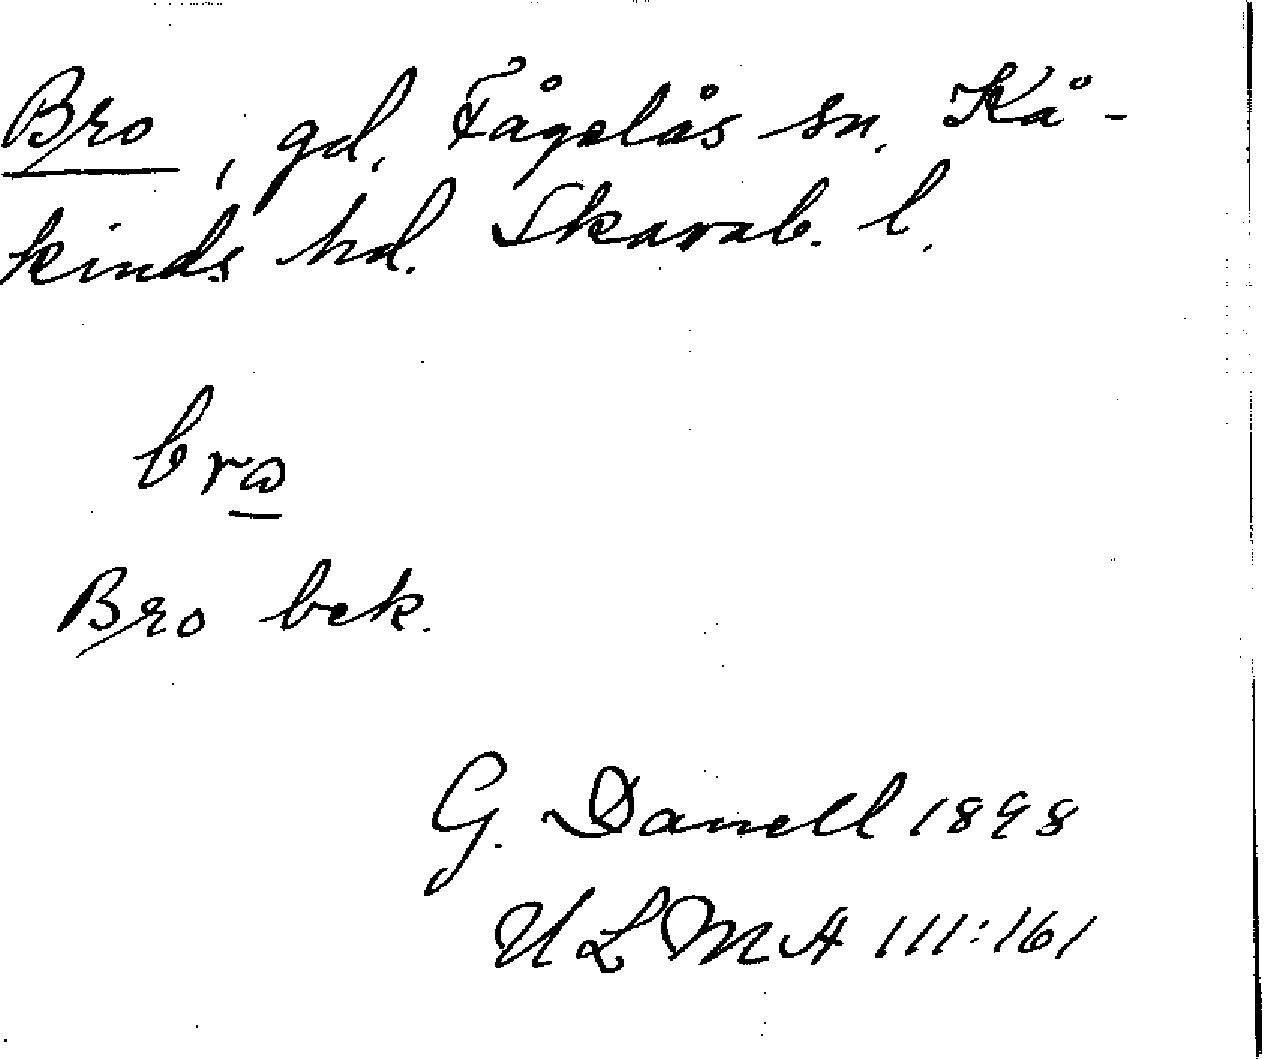 Bro, gd. Fågelås sn. Kå-
kinds hd. Skarab. l.
bro
Bro bek.
G. Danell 1898
ULMA 111:161